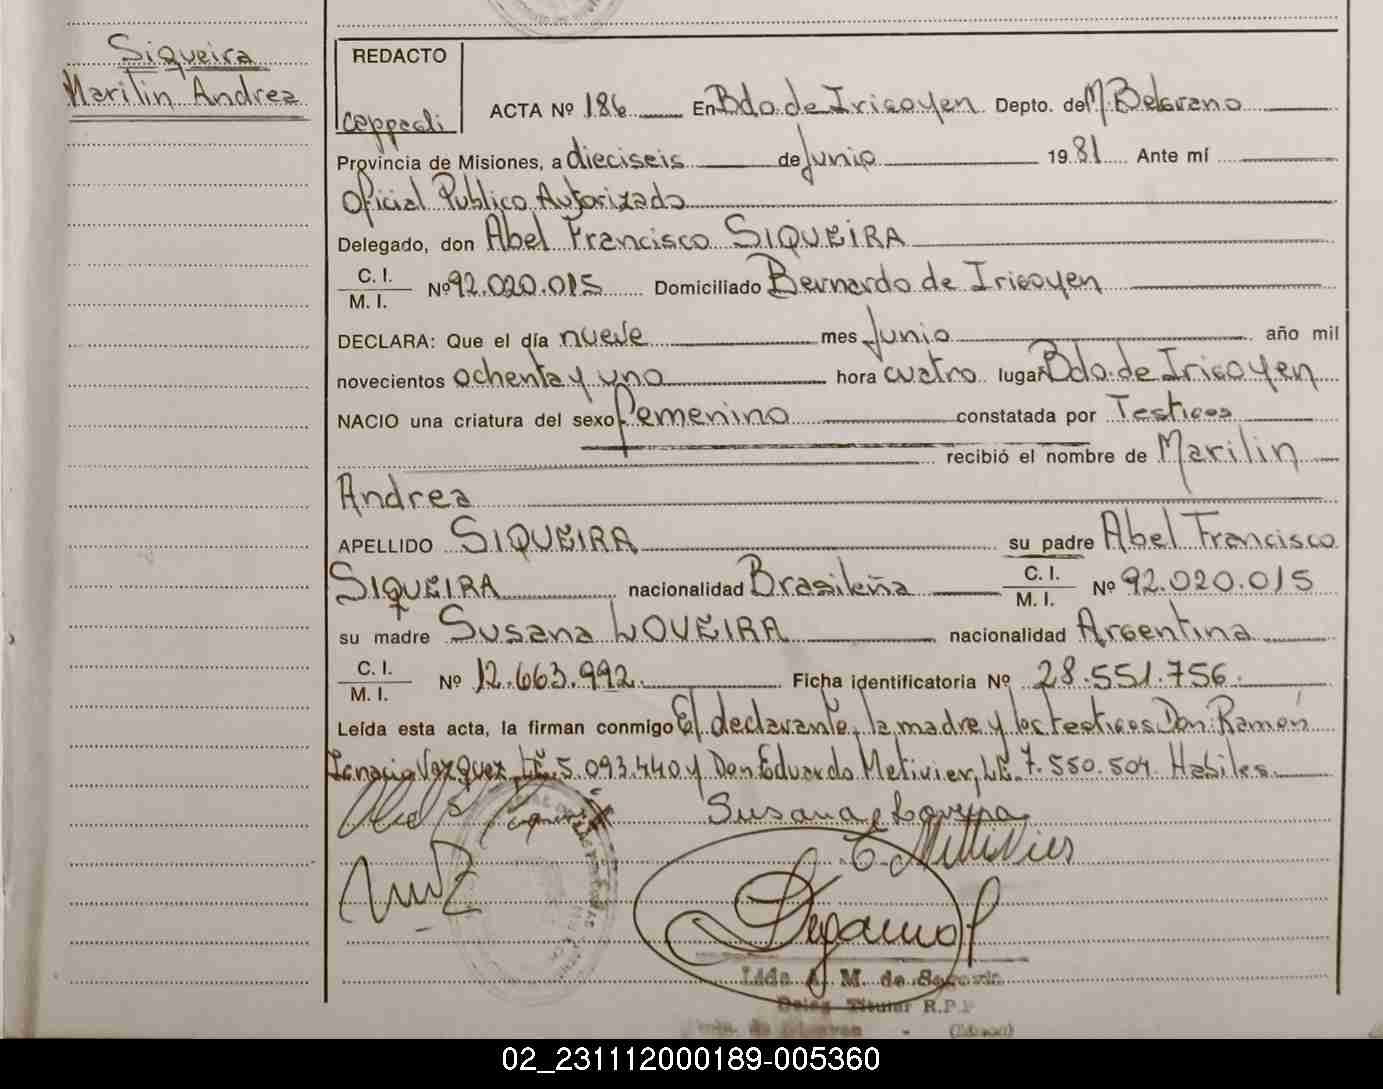 Siqueira
Marilin Andrea
REDACTO
ACTA Nº 186 En Bdo. de Irigoyen Depto. de M. Belgrano
Provincia de Misiones, a dieciseis de Junio 1981 Ante mí
Oficial Publico Autorizado
Delegado, don Abel Francisco SIQUEIRA
C. I.
M. I. Nº 92.020.015 Domiciliado Bernardo de Irigoyen
DECLARA: Que el día nueve mes Junio año mil
novecientos ochenta y uno hora cuatro lugar Bdo. de Irigoyen
NACIO una criatura del sexo femenino constatada por Testigos
recibió el nombre de Marilin
Andrea
APELLIDO SIQUEIRA su padre Abel Francisco
SIQUEIRA nacionalidad Brasileña C. I. M. I. Nº 92.020.015
su madre Susana LOVEIRA nacionalidad Argentina
C. I.
M. I. Nº 12.663.992. Ficha identificatoria Nº 28.551.756.
Leída esta acta, la firman conmigo El declarante, la madre y los testigos Don: Ramón
Ignacio Vazquez, LE. 5.093.440 y Don Eduardo Metivier, LE. 7.550.504. Habiles.
Susana Loveira
E. Metivier
Lida A. M. de Segovia
Deleg. Titular R.P.P
02_231112000189-005360